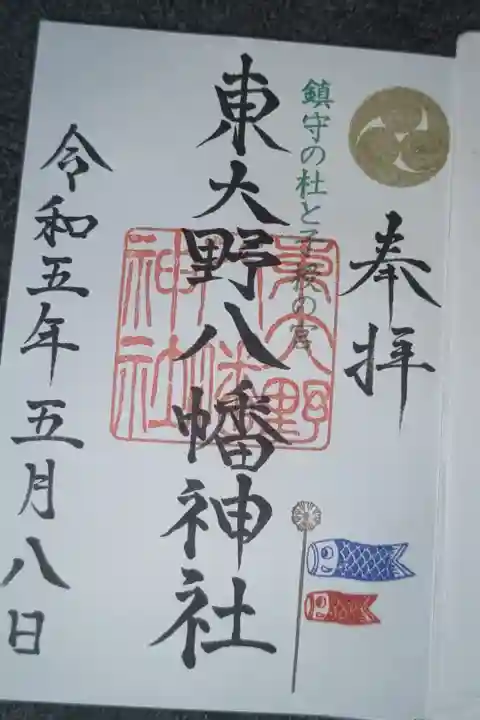 奉拝
鎮守の杜と子授の宮
東大野八幡神社
東大野八幡神社
令和五年五月八日